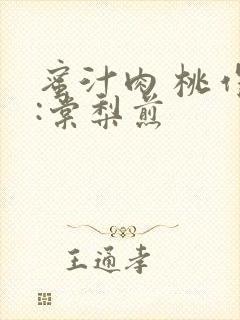 蜜汁肉桃作
:棠梨煎
王通孝